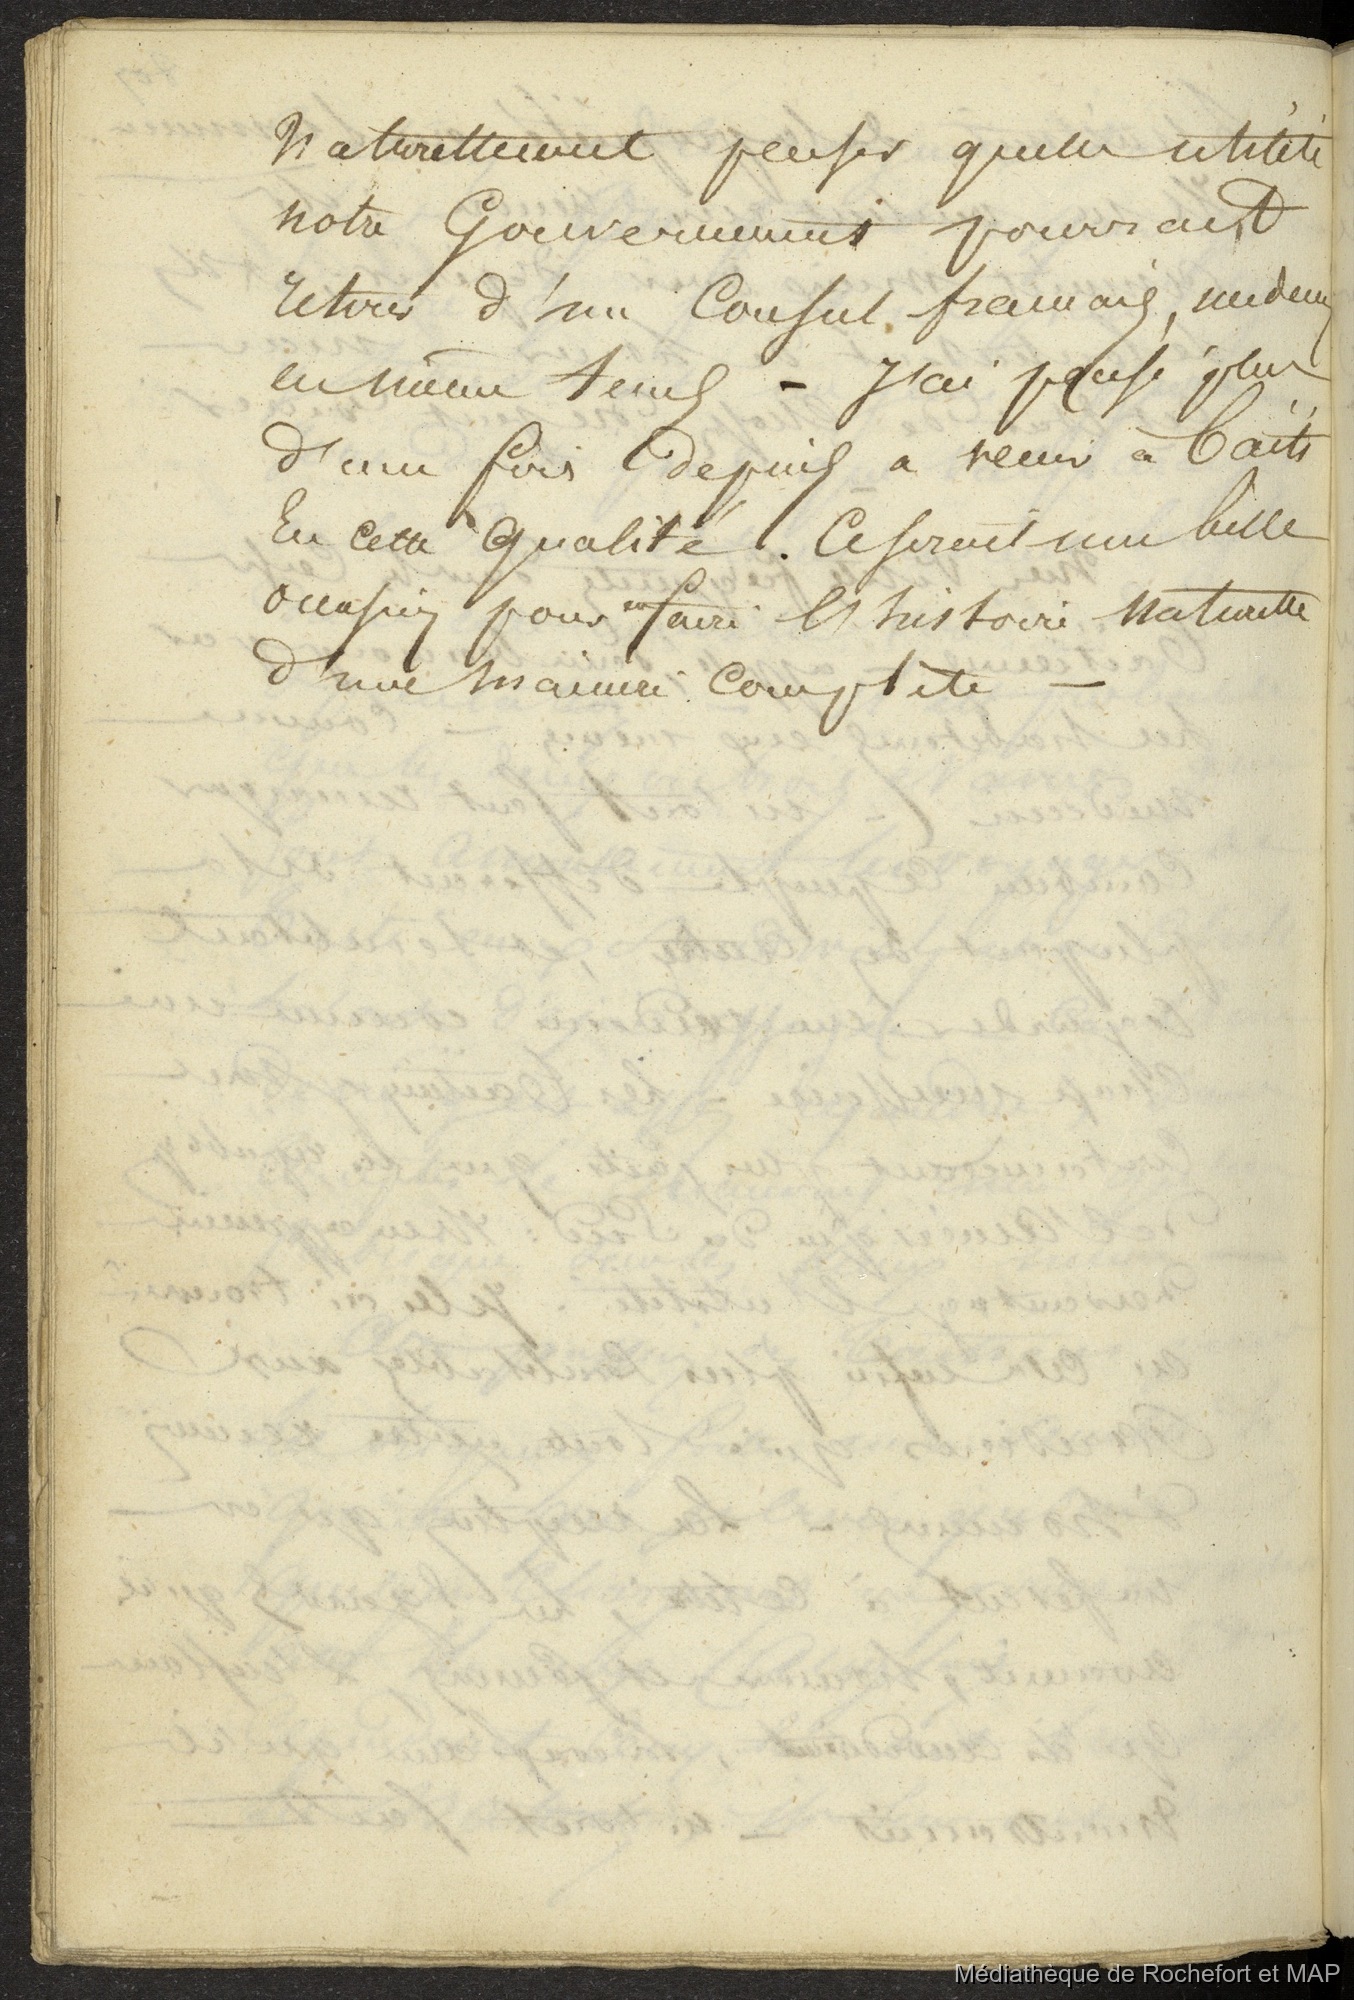 Naturellement penser quelle utilité
notre Gouvernement pourrait
retirer d'un Consul français, medecin
en même tems - J'ai pensé plus
d'une fois depuis a venir a Taïti
En cette qualité. Ce seroit une belle
occasion pour en faire l'histoire Naturelle
d'une maniere complète —
Médiathèque de Rochefort et MAP